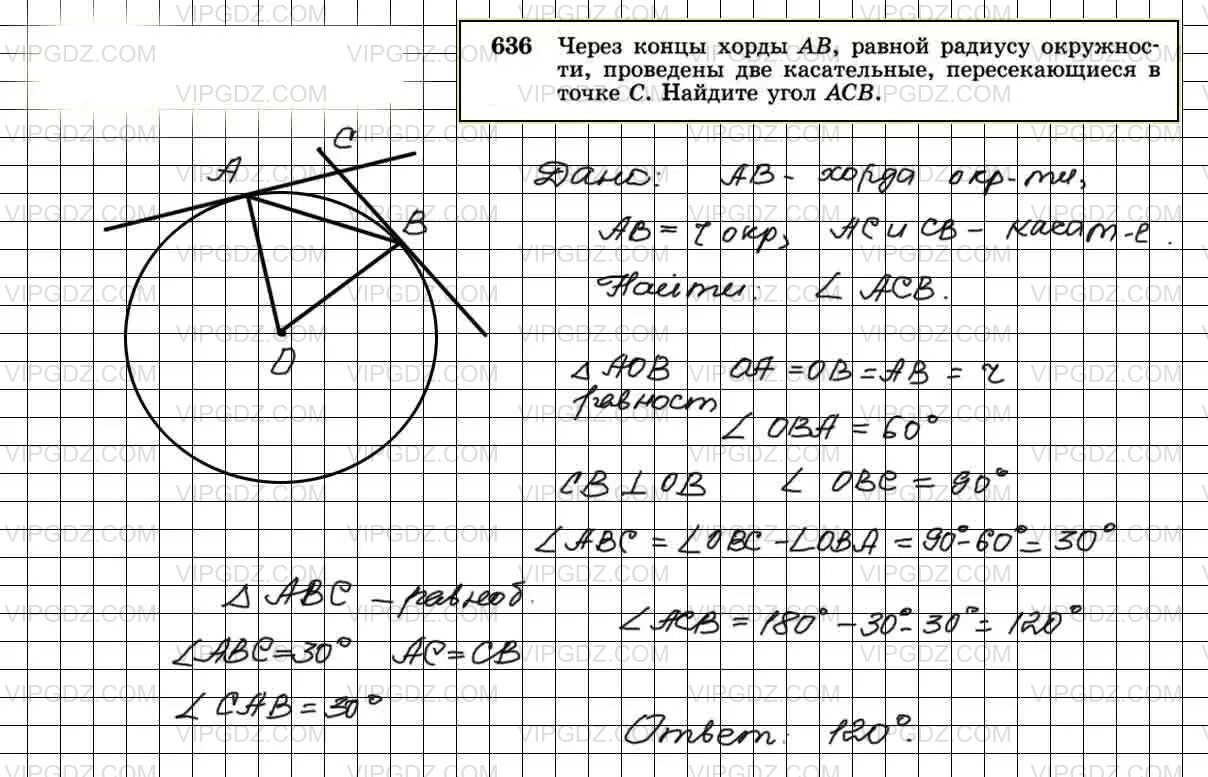 636 Через концы хорды AB, равной радиусу окружнос-
ти, проведены две касательные, пересекающиеся в
точке C. Найдите угол ACB.
A
C
B
O
Дано: AB - хорда окр-ти,
AB = r окр, AC и CB - касат-е.
Найти: ∠ ACB.
△ AOB OA = OB = AB = r
равност
∠ OBA = 60°
CB ⊥ OB ∠ OBC = 90°
∠ABC = ∠OBC - ∠OBA = 90° - 60° = 30°
△ ABC - равноб.
∠ABC = 30° AC = CB
∠ CAB = 30°
∠ ACB = 180° - 30° - 30° = 120°
Ответ: 120°.
VIPGDZ.COM